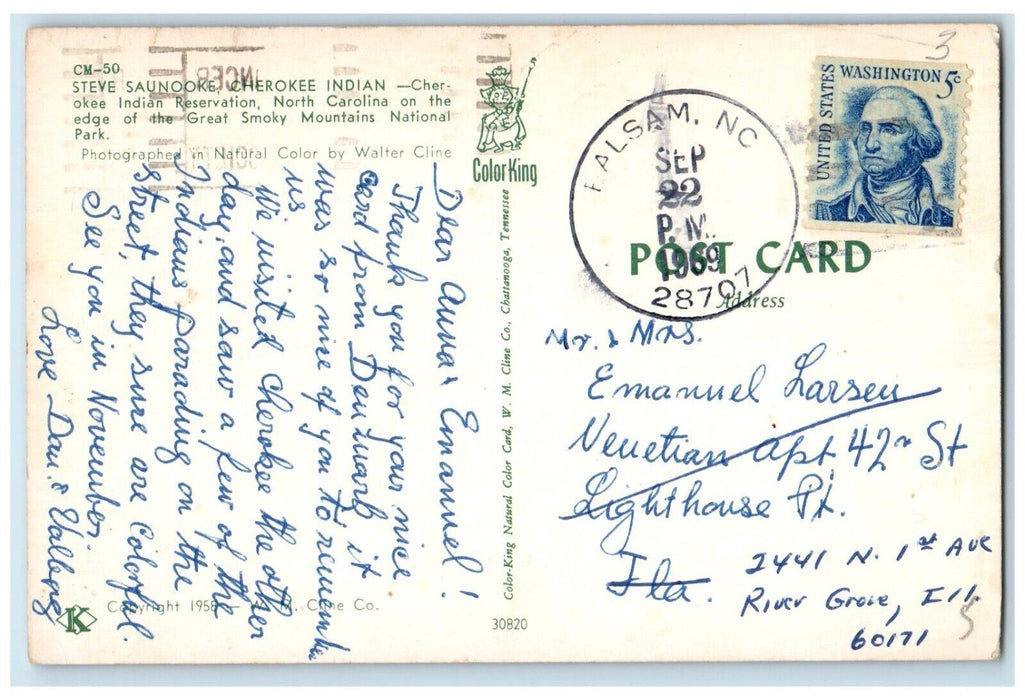 CM-50
STEVE SAUNOOKE, CHEROKEE INDIAN —Cher-
okee Indian Reservation, North Carolina on the
edge of the Great Smoky Mountains National
Park.
Photographed in Natural Color by Walter Cline
Dear Anna & Emanuel!
Thank you for your nice
card from Denmark it
was so nice of you to remember
us
We visited Cherokee the other
day, and saw a few of the
Indians parading on the
street, they sure are Colorful.
See you in November.
Love Dan. &
K
Copyright 1958 W. M. Cline Co.
ColorKing
Color-King Natural Color Card, W. M. Cline Co., Chattanooga, Tennessee
30820
BALSAM, NC
SEP
22
P.M.
1969
28707
UNITED STATES
WASHINGTON 5c
3
POST CARD
Address
Mr. & Mrs.
Emanuel Larsen
Venetian Apt 42n St
Lighthouse Pt.
Fla.
2441 N. 1st Ave
River Grove, Ill.
60171
5